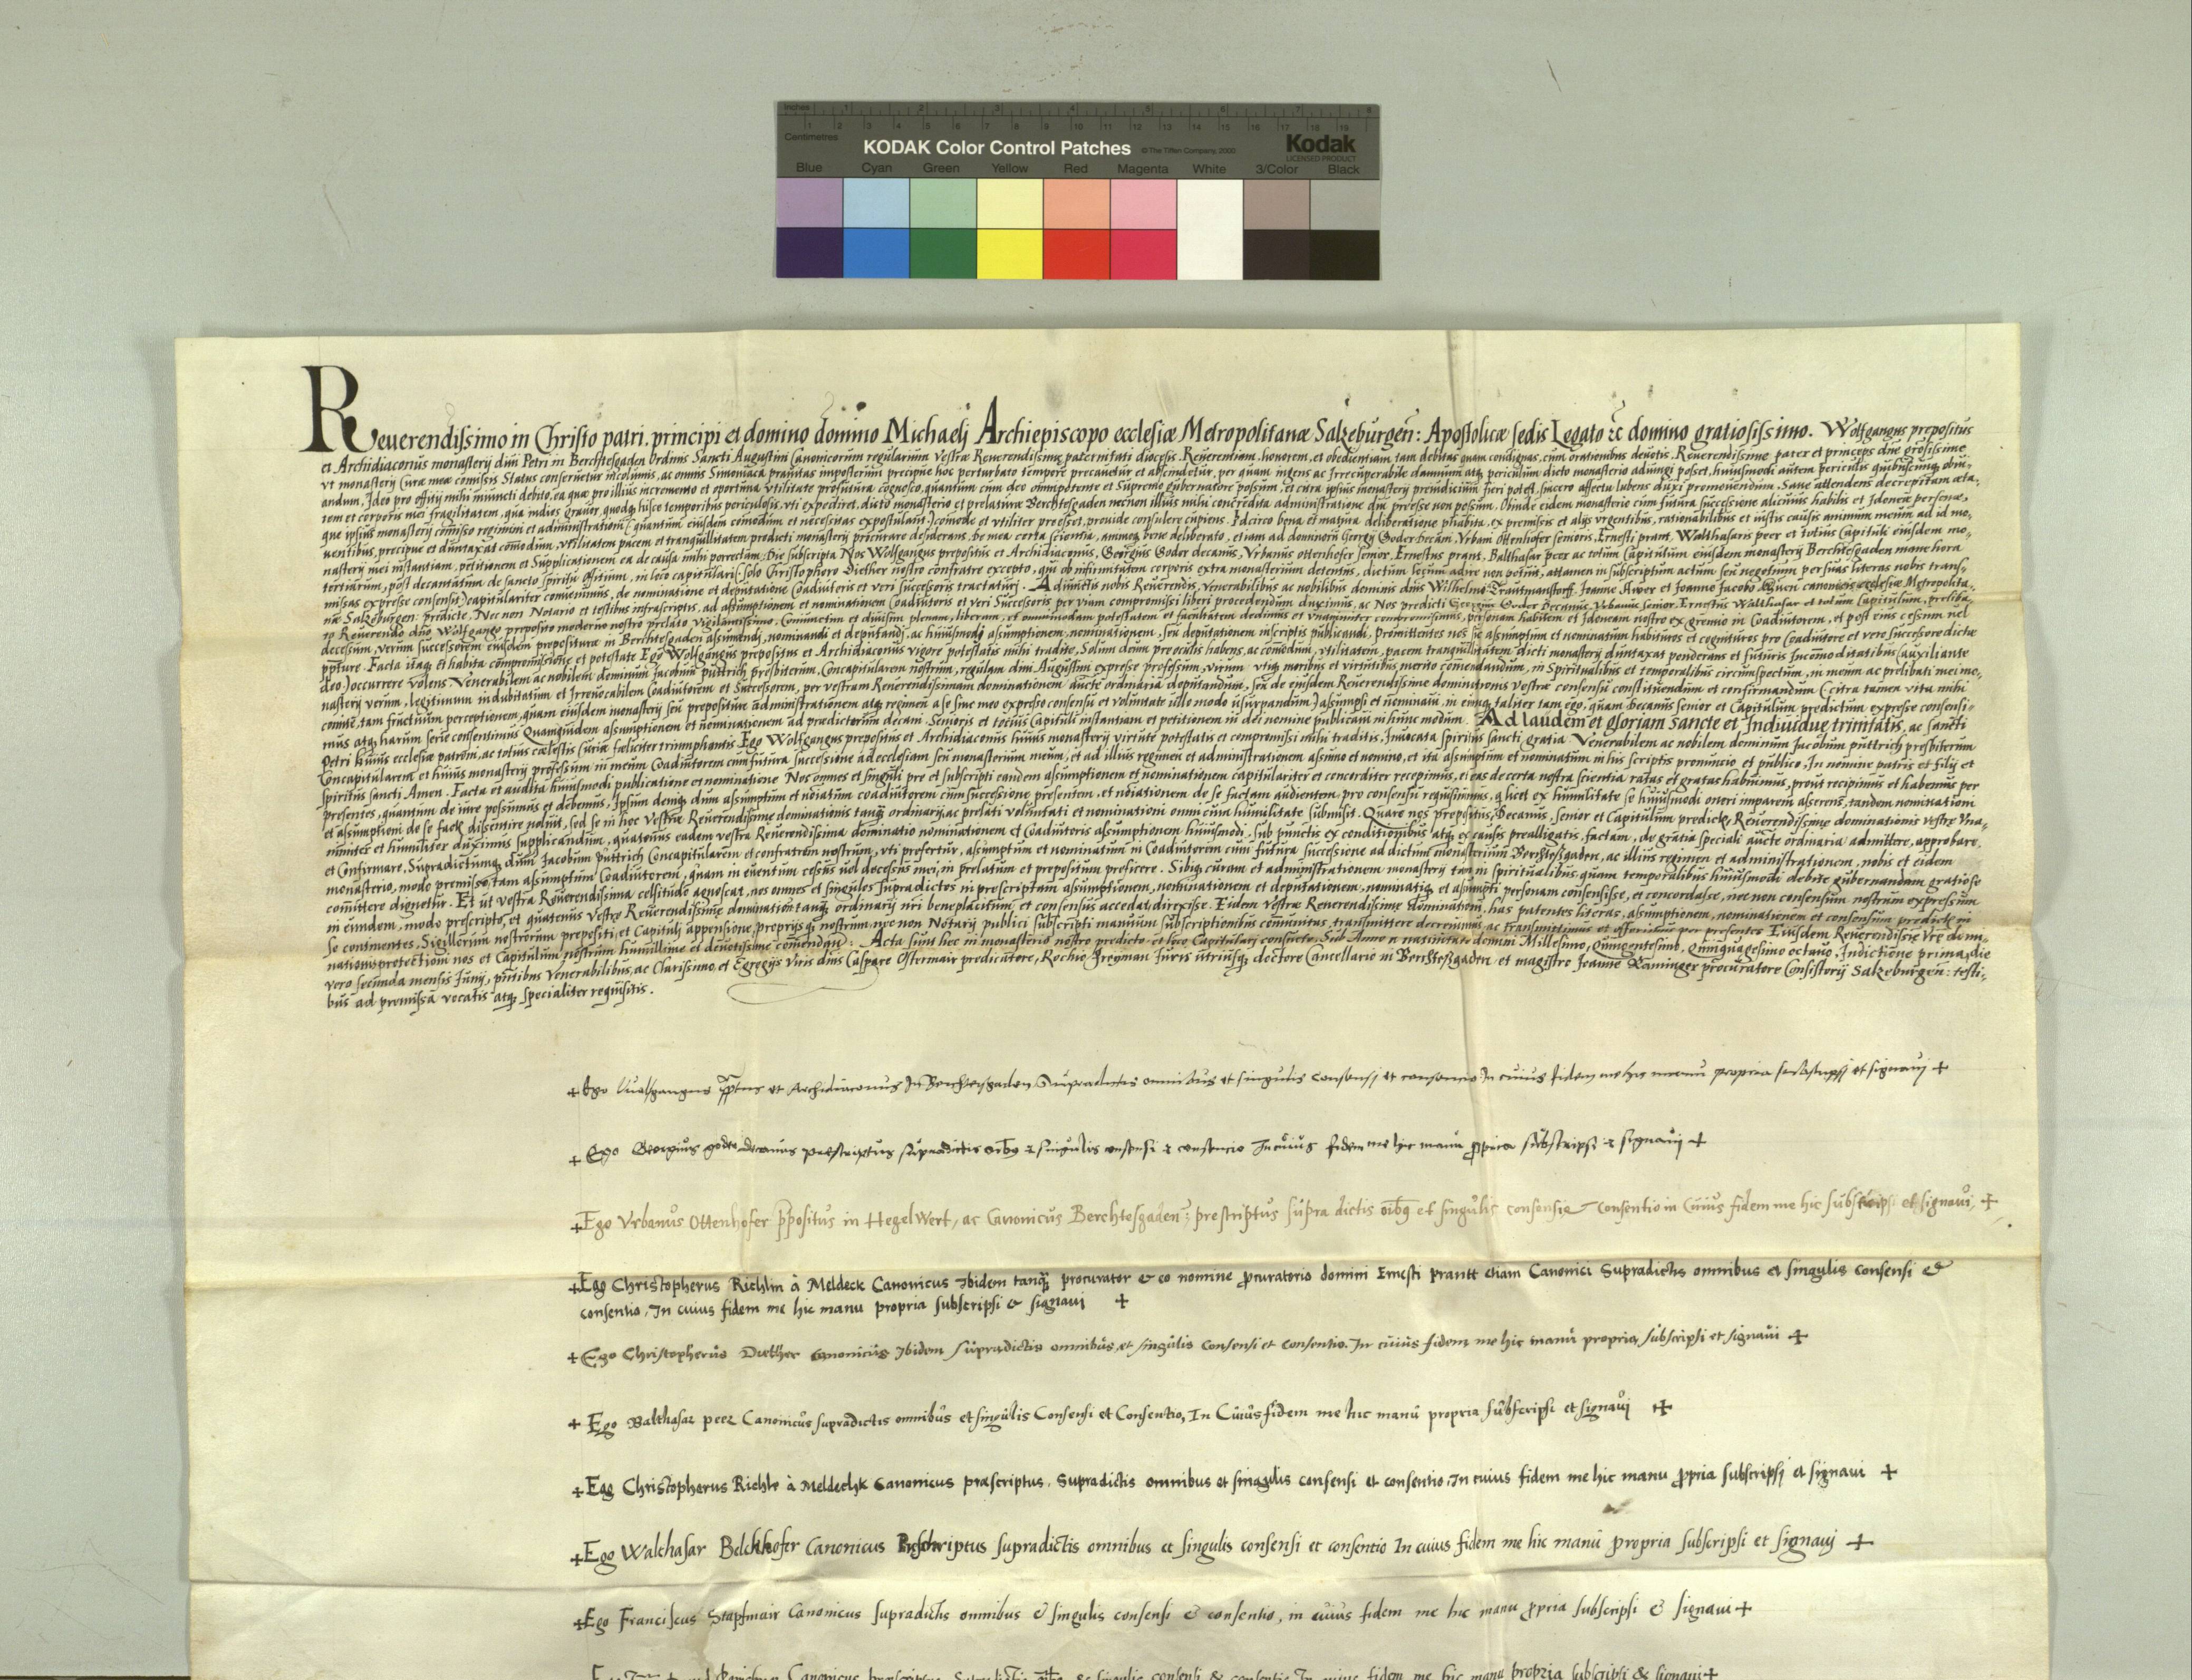 Inches 1 2 3 4 5 6 7 8
Centimetres 1 2 3 4 5 6 7 8 9 10 11 12 13 14 15 16 17 18 19
KODAK Color Control Patches © The Tiffen Company, 2000 Kodak
LICENSED PRODUCT
Blue Cyan Green Yellow Red Magenta White 3/Color Black
Reuerendissimo in Christo patri, principi et domino domino Michaeli Archiepiscopo ecclesiæ Metropolitanæ Salzeburgeñ: Apostolicæ sedis Legato ꝛc domino gratiosissimo. Wolfgangus prepositus
et Archidiaconus monasterij diui Petri in Berchtesgaden Ordinis Sancti Augustini Canonicorum regularium vestræ Reuerendissimæ paternitati diocesis. Reuerentiam, honorem, et obedientiam, tam debitas quam condignas, cum orationibus deuotis. Reuerendissime pater et princeps dñe grosissime
vt monasterij Curæ meæ comissi Status conseruetur incolumis, ac omnis Simoniaca prauitas imposterum precipue hoc perturbato tempore precauetur et abscindetur, per quam ingens ac Irrecuperabile damnum atq periculum dicto monasterio adiungi posset, huiusmodi autem periculis quibuscunq obui-
andum, Ideo pro officij mihi iniuncti debito, ea quæ pro illius incremento et oportuna vtilitate profutura cognosco, quantum cum deo omnipotente et Supremo gubernatore possum, et cura ipsius monasterij preiudicium fieri potest, sincero affectu lubens duxi promouendum. Sane attendens decrepitam æta-
tem et corporis mei fragilitatem, qua indies grauor, quodq hisce temporibus periculosis, vti expediret, dicto monasterio et prelaturæ Berchtesgaden necnon illius mihi concredita administratione diu preesse non possum. Obinde eidem monasterio cum futura successione alicuius habilis et Idoneæ personæ,
que ipsius monasterij comisso regimini et administrationi (quantum eiusdem comodum et necessitas expostulant) comode et vtiliter preesset, prouide consulere cupiens. Idcirco bona et matura deliberatione phabita, ex premissis et alijs vrgentibus, rationabilibus et iustis causis animum meum ad id mo-
uentibus, precipue et duntaxat comodum, vtilitatem pacem et tranquillitatem predicti monasterij procurare desiderans, de mea certa scientia, animoq bene deliberato, etiam ad dominorum Georgij Goder decani, Vrbani ottenhofer senioris, Ernesti prant, Walthasaris peer et totius Capituli eiusdem mo-
nasterij mei instantiam, petitionem et supplicationem ea de causa mihi porrectam. Die subscripta Nos Wolfgangus prepositus et Archidiaconus, Georgius Goder decanus, Vrbanus ottenhofer senior, Ernestus prant, Balthasar peer ac totum Capitulum eiusdem monasterij Berchtesgaden mane hora
tertiarum, post decantatum de sancto spiritu offitium, in loco capitularis (solo Christophoro Diether nostro confratre excepto, qui ob infirmitatem corporis extra monasterium detentus, dictum locum adire non potuit, attamen in subscriptum actum seu negotium per suas literas nobis trans-
missas expresse consensit) capitulariter conuenimus, de nominatione et deputatione Coadiutoris et veri successoris tractaturi. Adiunctis nobis Reuerendis, Venerabilibus ac nobilibus dominis dñis Wilhelmo Trautmanstorff, Joanne et Joanne Jacobo canonicis ecclesiæ Metropolita-
næ Salzeburgeñ: predictæ. Nec non Notario et testibus infrascriptis, ad assumptionem et nominationem Coadiutoris et veri Successoris per viam compromissi liberi procedendum duximus, ac Nos predicti Georgius Goder Decanus, Vrbanus senior, Ernestus Walthasar et totum Capitulum, preliba-
to Reuerendo dño Wolfgango preposito moderno nostro prelato vigilantissimo. Coniunctim et diuisim plenam, liberam, et omnimodam potestatem et facultatem dedimus et vnanimiter compromisimus, personam habilem et Idoneam nostro ex gremio in Coadiutorem, et post eius cessum uel
decessum, verum successorem eiusdem prepositure in Berchtesgaden assumendi, nominandi et deputandi, ac huiusmodi assumptionem, nominationem, seu deputationem inscriptis publicandi, promittentes nos sic assumptum et nominatum habituros et cognituros pro Coadiutore et vero successore dictæ
ppture. Facta itaq et habita compromissione et potestate Ego Wolfgangus prepositus et Archidiaconus vigore potestatis mihi tradite, Solum deum pre oculis habens, ac comodum, vtilitatem, pacem tranquillitatem dicti monasterij duntaxat penderans et futuris Incomoditatibus (auxiliante
deo) occurrere volens. Venerabilem ac nobilem dominum Jacobum puttrich presbiterum, Concapitularem nostrum, regulam diui Augustini expresse professum, virum vtiq moribus et virtutibus merito comendandum, in Spiritualibus et temporalibus circumspectum, in meum ac prelibati mei mo-
nasterij verum, legitimum indubitatum et Irreuocabilem Coadiutorem et Successorem, per vestram Reuerendissimam dominationem aucte ordinaria deputandum, seu de eiusdem Reuerendissime dominationis Vestræ consensu constituendum et confirmandum (citra tamen vita mihi
comite, tam fructuum perceptionem, quam eiusdem monasterij seu prepositure administrationem atq regimen a se sine meo expresso consensu et volintate ullo modo usurpandum) assumpsi et nominaui, in eumq taliter tam ego, quam decanus senior et Capitulum predictum expresse consensi-
mus atq harum serie consentimus. Quamquidem assumptionem et nominationem ad prædictorum decani, Senioris et totius Capituli instantiam et petitionem in dei nomine publicaui in hunc modum. Ad laudem et gloriam sancte et Indiuidue trinitatis, ac sancti
Petri huius ecclesiæ patroni, ac totius cœlestis curiæ fœliciter triumphantis. Ego Wolfgangus prepositus et Archidiaconus huius monasterij virtute potestatis et compromissi mihi traditis, Inuocata spiritus sancti gratia Venerabilem ac nobilem dominum Jacobum puttrich presbiterum
Concapitularem et huius monasterij professum in meum Coadiutorem cum futura successione ad ecclesiam seu monasterium meum, et ad illius regimen et administrationem assumo et nomino, et ita assumptum et nominatum in his scriptis pronuncio et publico, In nomine patris et filij et
spiritus sancti Amen. Facta et audita huiusmodi publicatione et nominatione Nos omnes et singuli pre et subscripti eandem assumptionem et nominationem capitulariter et concorditer recepimus, et eas de certa nostra scientia ratas et gratas habuimus, prout recipimus et habemus per
presentes, quantum de iure possumus et debemus, Ipsum demq dum assumptum et noiatum coadiutorem cum successione presentem, et noiationem de se factam audientem, pro consensu requisiuimus, q licet ex humilitate se huiusmodi oneri imparem asserens, tandem nominationi
et assumptioni de se factæ dissentire noluit, sed se in hoc Vestræ Reuerendissime dominationis tanq ordinarij, ac prelati voluntati et nominationi omni cum humilitate submisit. Quare nos prepositus, Decanus, Senior et Capitulum predicte, Reuerendissime dominationis vestre Vna-
nimiter et humiliter duximus supplicandum, quatenus eadem vestra Reuerendissima dominatio nominationem et Coadiutoris assumptionem huiusmodi, sub punctis et conditionibus atq ex causis prealligatis, factam, de gratia speciali aucte ordinaria admittere, approbare,
et Confirmare, Supradictumq dum Jacobum puttrich Concapitularem et confratrem nostrum, vti prefertur, assumptum et nominatum in Coadiutorem cum futura successione ad dictum monasterium Berchtesgaden, ac illius regimen et administrationem, nobis et eidem
monasterio, modo premisso, tam assumptum Coadiutorem, quam in euentum cessus uel decessus mei, in prelatum et prepositum preficere. Sibiq curam et administrationem monasterij tam in spiritualibus quam temporalibus huiusmodi debite gubernandam gratiose
comittere dignetur. Et ut vestra Reuerendissima celsitudo agnoscat, nos omnes et singulos supradictos in prescriptam assumptionem, nominationem et deputationem, nominatiq et assumpti personam consensisse, et concordasse, nec non consensum nostrum expressum
in eundem, modo prescripto, et quatenus Vestre Reuerendissime dominationi tanq ordinarij nri beneplacitum, et consensus accedat, direxisse. Eidem Vestræ Reuerendissime dominationi, has patentes literas, assumptionem, nominationem et consensum predicte in
se continentes, Sigillorum nostrorum prepositi, et Capituli appensione, proprijsq nostrum, nec non Notarij publici subscripti manuum subscriptionibus comunitas, transmittere decreuimus ac transmittimus et offerimus per presentes Eiusdem Reuerendissie Vre domi-
nationis protectioni nos et Capitulum nostrum humillime et deuotissime comendam: Acta sunt hec in monasterio nostro predicto et loco Capitulari consueto, Sub Anno a natiuitate domini Millesimo, Quingentesimo, Quinquagesimo octauo, Indictione prima, die
vero secunda mensis Junij, pntibus Venerabilibus, ac Clarissimo, et Egregijs Viris dñis Caspare Ostermair predicatore, Rocho Freyman Iuris utriusq doctore Cancellario in Berchtesgaden, et magistro Joanne Raminger procuratore Consistorij Salzeburgeñ: testi-
bus ad premissa vocatis atq specialiter requisitis.
+ Ego Wolfgangus ppitus et Archidiaconus In Berchtesgaden Supradictis omnibus et singulis consensi et consentio In cuius fidem me hic manu propria subscripsi et signaui +
+ Ego Georgius goder decanus prescriptus supradictis oibq & singulis consensi & consencio In cuius fidem me hic manu ppria subscripsi & signauij +
+ Ego Vrbanus Ottenhofer ppositus in Hegelwert, ac Canonicus Berchtesgaden: prescriptus supra dictis oibq et singulis consensi & Consentio in Cuius fidem me hic subscripsi et signaui, +
+ Ego Christopherus Richlin à Meldeck Canonicus Ibidem tanq procurator & eo nomine pcuratorio domini Ernesti prantt etiam Canonici Supradictis omnibus et singulis consensi &
consentio, In cuius fidem me hic manu propria subscripsi & signaui +
+ Ego Christopherus Diether canonicus Ibidem supradictis omnibus, et singulis consensi et consentio. In cuius fidem me hic manu propria, subscripsi et signaui +
+ Ego Balthasar peer Canonicus supradictis omnibus et singulis Consensi et Consentio, In Cuius fidem me hic manu propria subscripsi et signaui +
+ Ego Christopherus Richle à Meldechk Canonicus præscriptus, Supradictis omnibus et singulis consensi et consentio, In cuius fidem me hic manu ppria subscripsi et signaui +
+ Ego Walthasar Belckhofer Canonicus Prescriptus supradictis omnibus et singulis consensi et consentio In cuius fidem me hic manu propria subscripsi et signauj +
+ Ego Franciscus Stapfmair Canonicus supradictis omnibus & singulis consensi & consentio, in cuius fidem me hic manu ppria subscripsi & signaui +
Canonicus prescriptus Supradictis oibq & singulis consensi & consentio In cuius fidem me hic manu propria subscripsi & signaui +